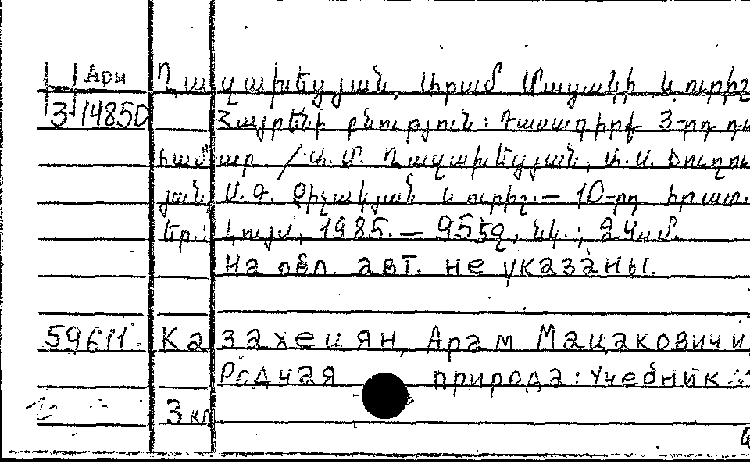 Арм Ղազախեցյան, Արամ Մացակի և ուրիշ
3-14850 Հայրենի բնություն: Դասագիրք 3-րդ դա
համար / Ա. Մ. Ղազախեցյան,
յան, և ուրիշ. — 10-րդ հրատ.
Եր.: Լույս, 1985. — նկ.; 24սմ.
На обл. авт. не указаны.
59611 Казахецян, Арам Мацакович и
Родная природа: Учебник
3 кл